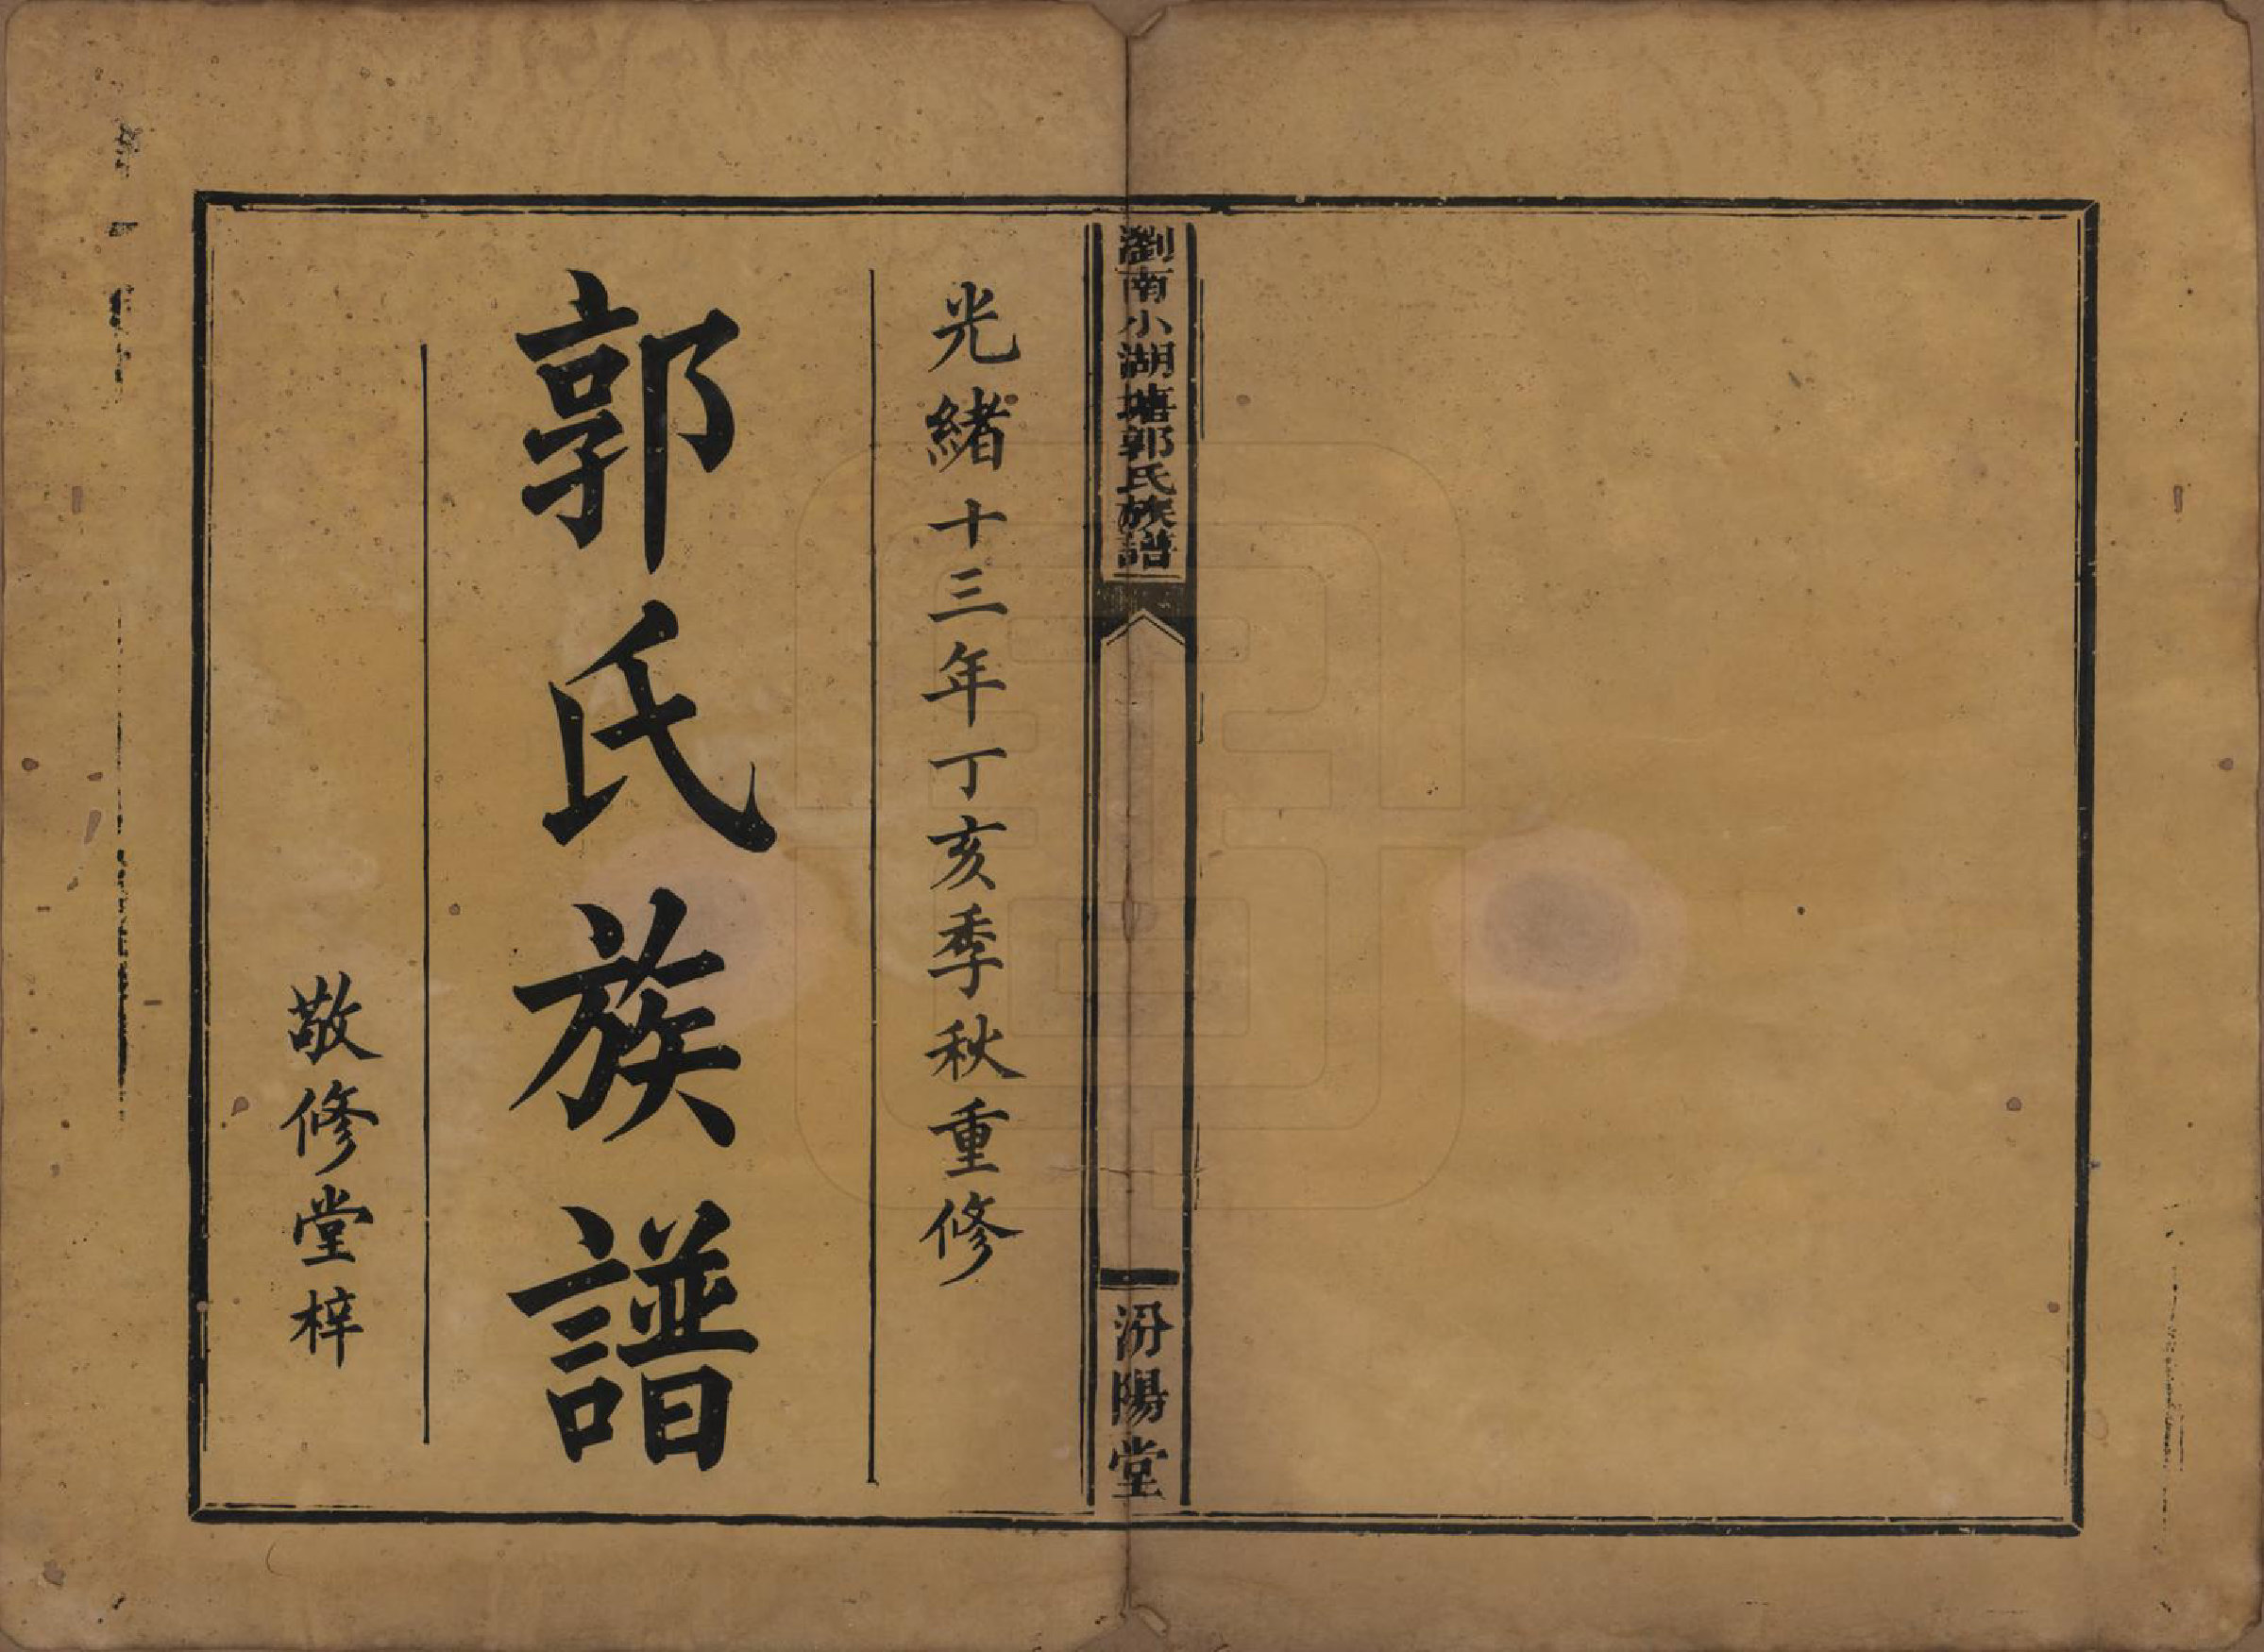 瀏南小湖塘郭氏族譜
汾陽堂
光緒十三年丁亥季秋重修
郭氏族譜
敬修堂梓